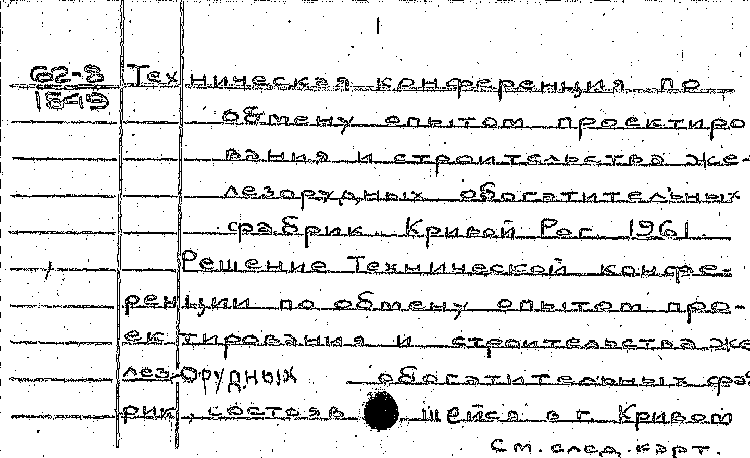 62-8 Техническая конференция по
1849
обмену опытом проектиро
вания и строительства же-
лезорудных обогатительных
фабрик. Кривой Рог. 1961.
Решение Технической конфе-
ренции по обмену опытом про-
ектирования и строительства же
лезорудных обогатительных фаб
рик, состояв шейся в г. Кривом
См. след. карт.